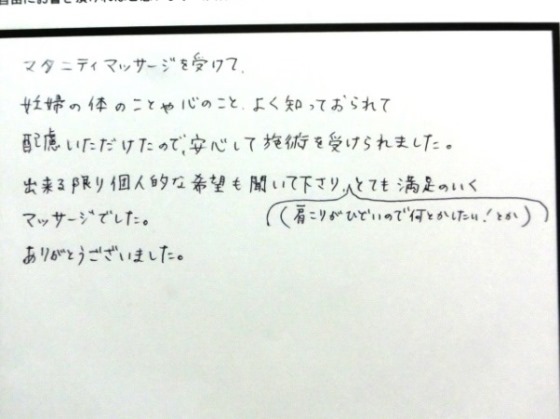 マタニティマッサージを受けて、
妊婦の体のことや心のこと、よく知っておられて
配慮いただけたので、安心して施術を受けられました。
出来る限り個人的な希望も聞いて下さり、とても満足のいく
(肩こりがひどいので何とかしたい!とか)
マッサージでした。
ありがとうございました。